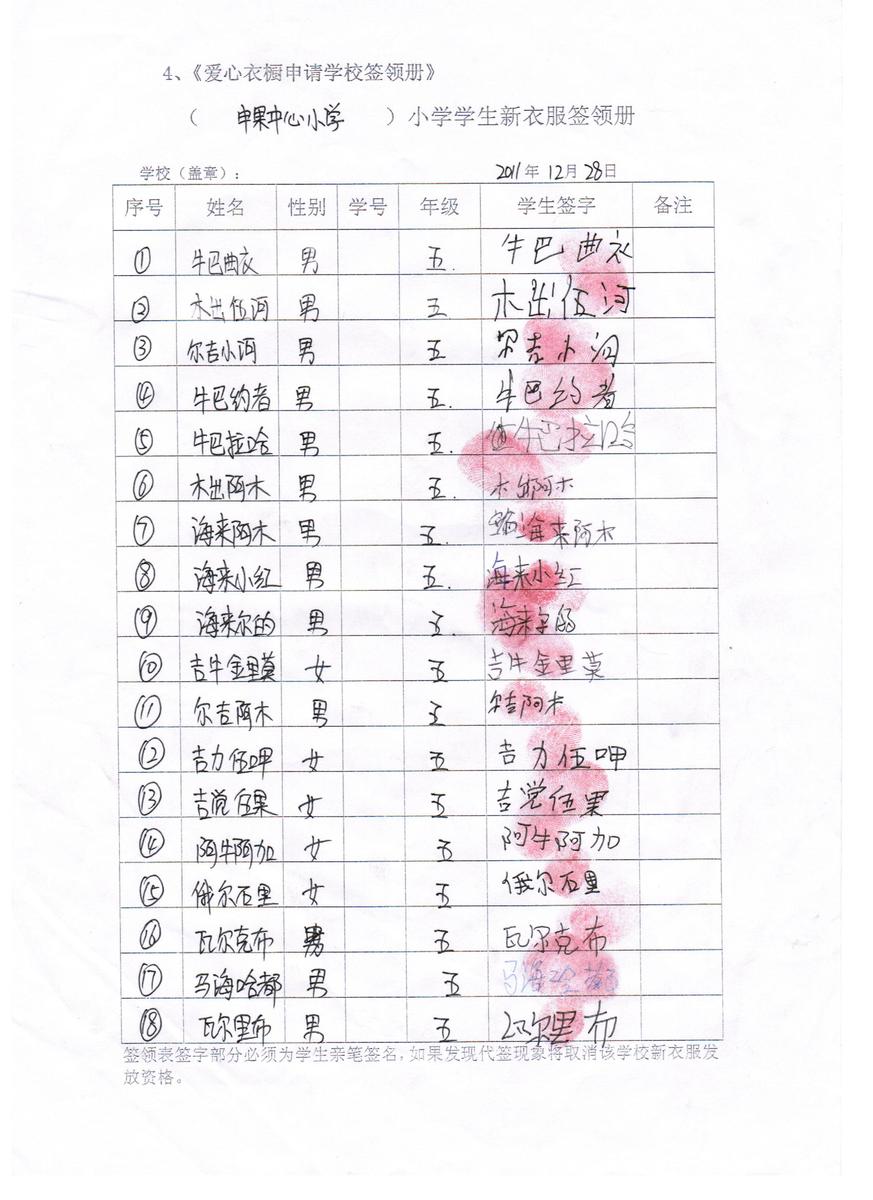 4、《爱心衣橱申请学校签领册》
（ 申果中心小学 ）小学学生新衣服签领册
学校（盖章）： 2011年 12月 28日
序号 姓名 性别 学号 年级 学生签字 备注
① 牛巴曲衣 男 五. 牛巴曲衣
② 木出伍河 男 五 木出伍河
③ 尔吉小河 男 五 尔吉小河
④ 牛巴约者 男 五. 牛巴约者
⑤ 牛巴拉哈 男 五. 牛巴拉哈
⑥ 木出阿木 男 五. 木出阿木
⑦ 海来阿木 男 五. 海来阿木
⑧ 海来小红 男 五. 海来小红
⑨ 海来尔的 男 五 海来字的
⑩ 吉牛金里莫 女 五 吉牛金里莫
⑪ 尔吉阿木 男 五 尔吉阿木
⑫ 吉力伍呷 女 五 吉力伍呷
⑬ 吉觉伍果 女 五 吉觉伍果
⑭ 阿牛阿加 女 五 阿牛阿加
⑮ 俄尔石里 女 五 俄尔石里
⑯ 瓦尔克布 男 五 瓦尔克布
⑰ 马海哈都 男 五 马海
⑱ 瓦尔里布 男 五 瓦尔里布
签领表签字部分必须为学生亲笔签名，如果发现代签现象将取消该学校新衣服发
放资格。